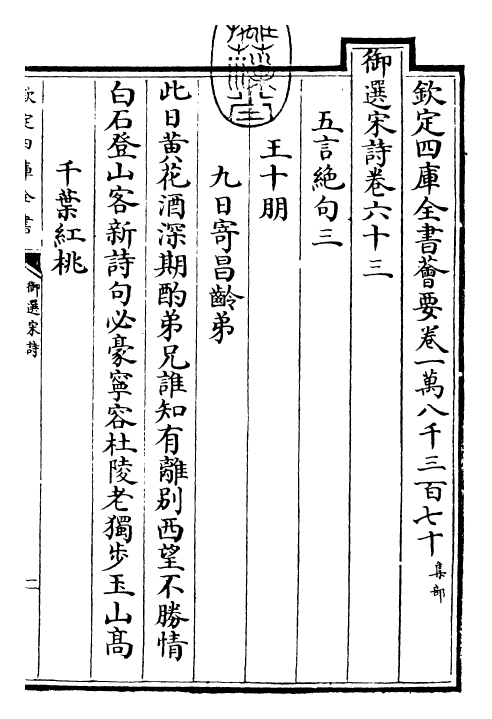 欽定四庫全書薈要卷一萬八千三百七十集部
御選宋詩卷六十三
五言絶句三
王十朋
九日寄昌齡弟
此日黄花酒深期酌弟兄誰知有離别西望不勝情
白石登山客新詩句必豪寧容杜陵老獨步玉山髙
千葉紅桃
欽定四庫全書
御選宋詩